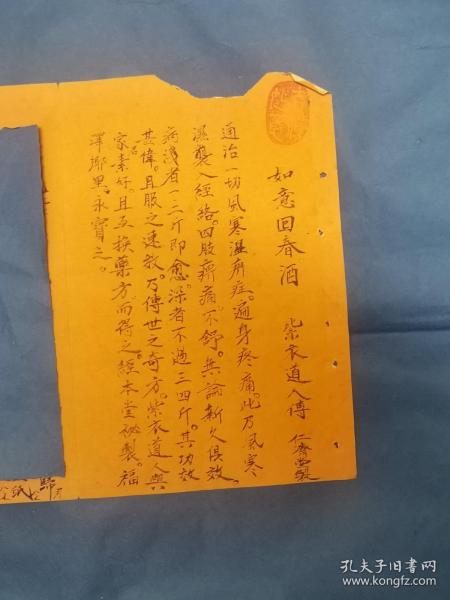 如意回春酒 紫衣道人傳 仁齋
通治一切風寒濕痹症。遍身疼痛。此乃風寒
濕襲入經絡。四肢痹痛不舒。無論新久俱效。
病淺者一二斤即愈。深者不過三四斤。其功效
甚偉。且服之速效。乃傳世之奇方。紫衣道人與
家名素好且互換藥方而得之。經本堂祕製。福
澤鄉里。永寶之。
紙 歸
孔夫子旧书网
www.kongfz.com